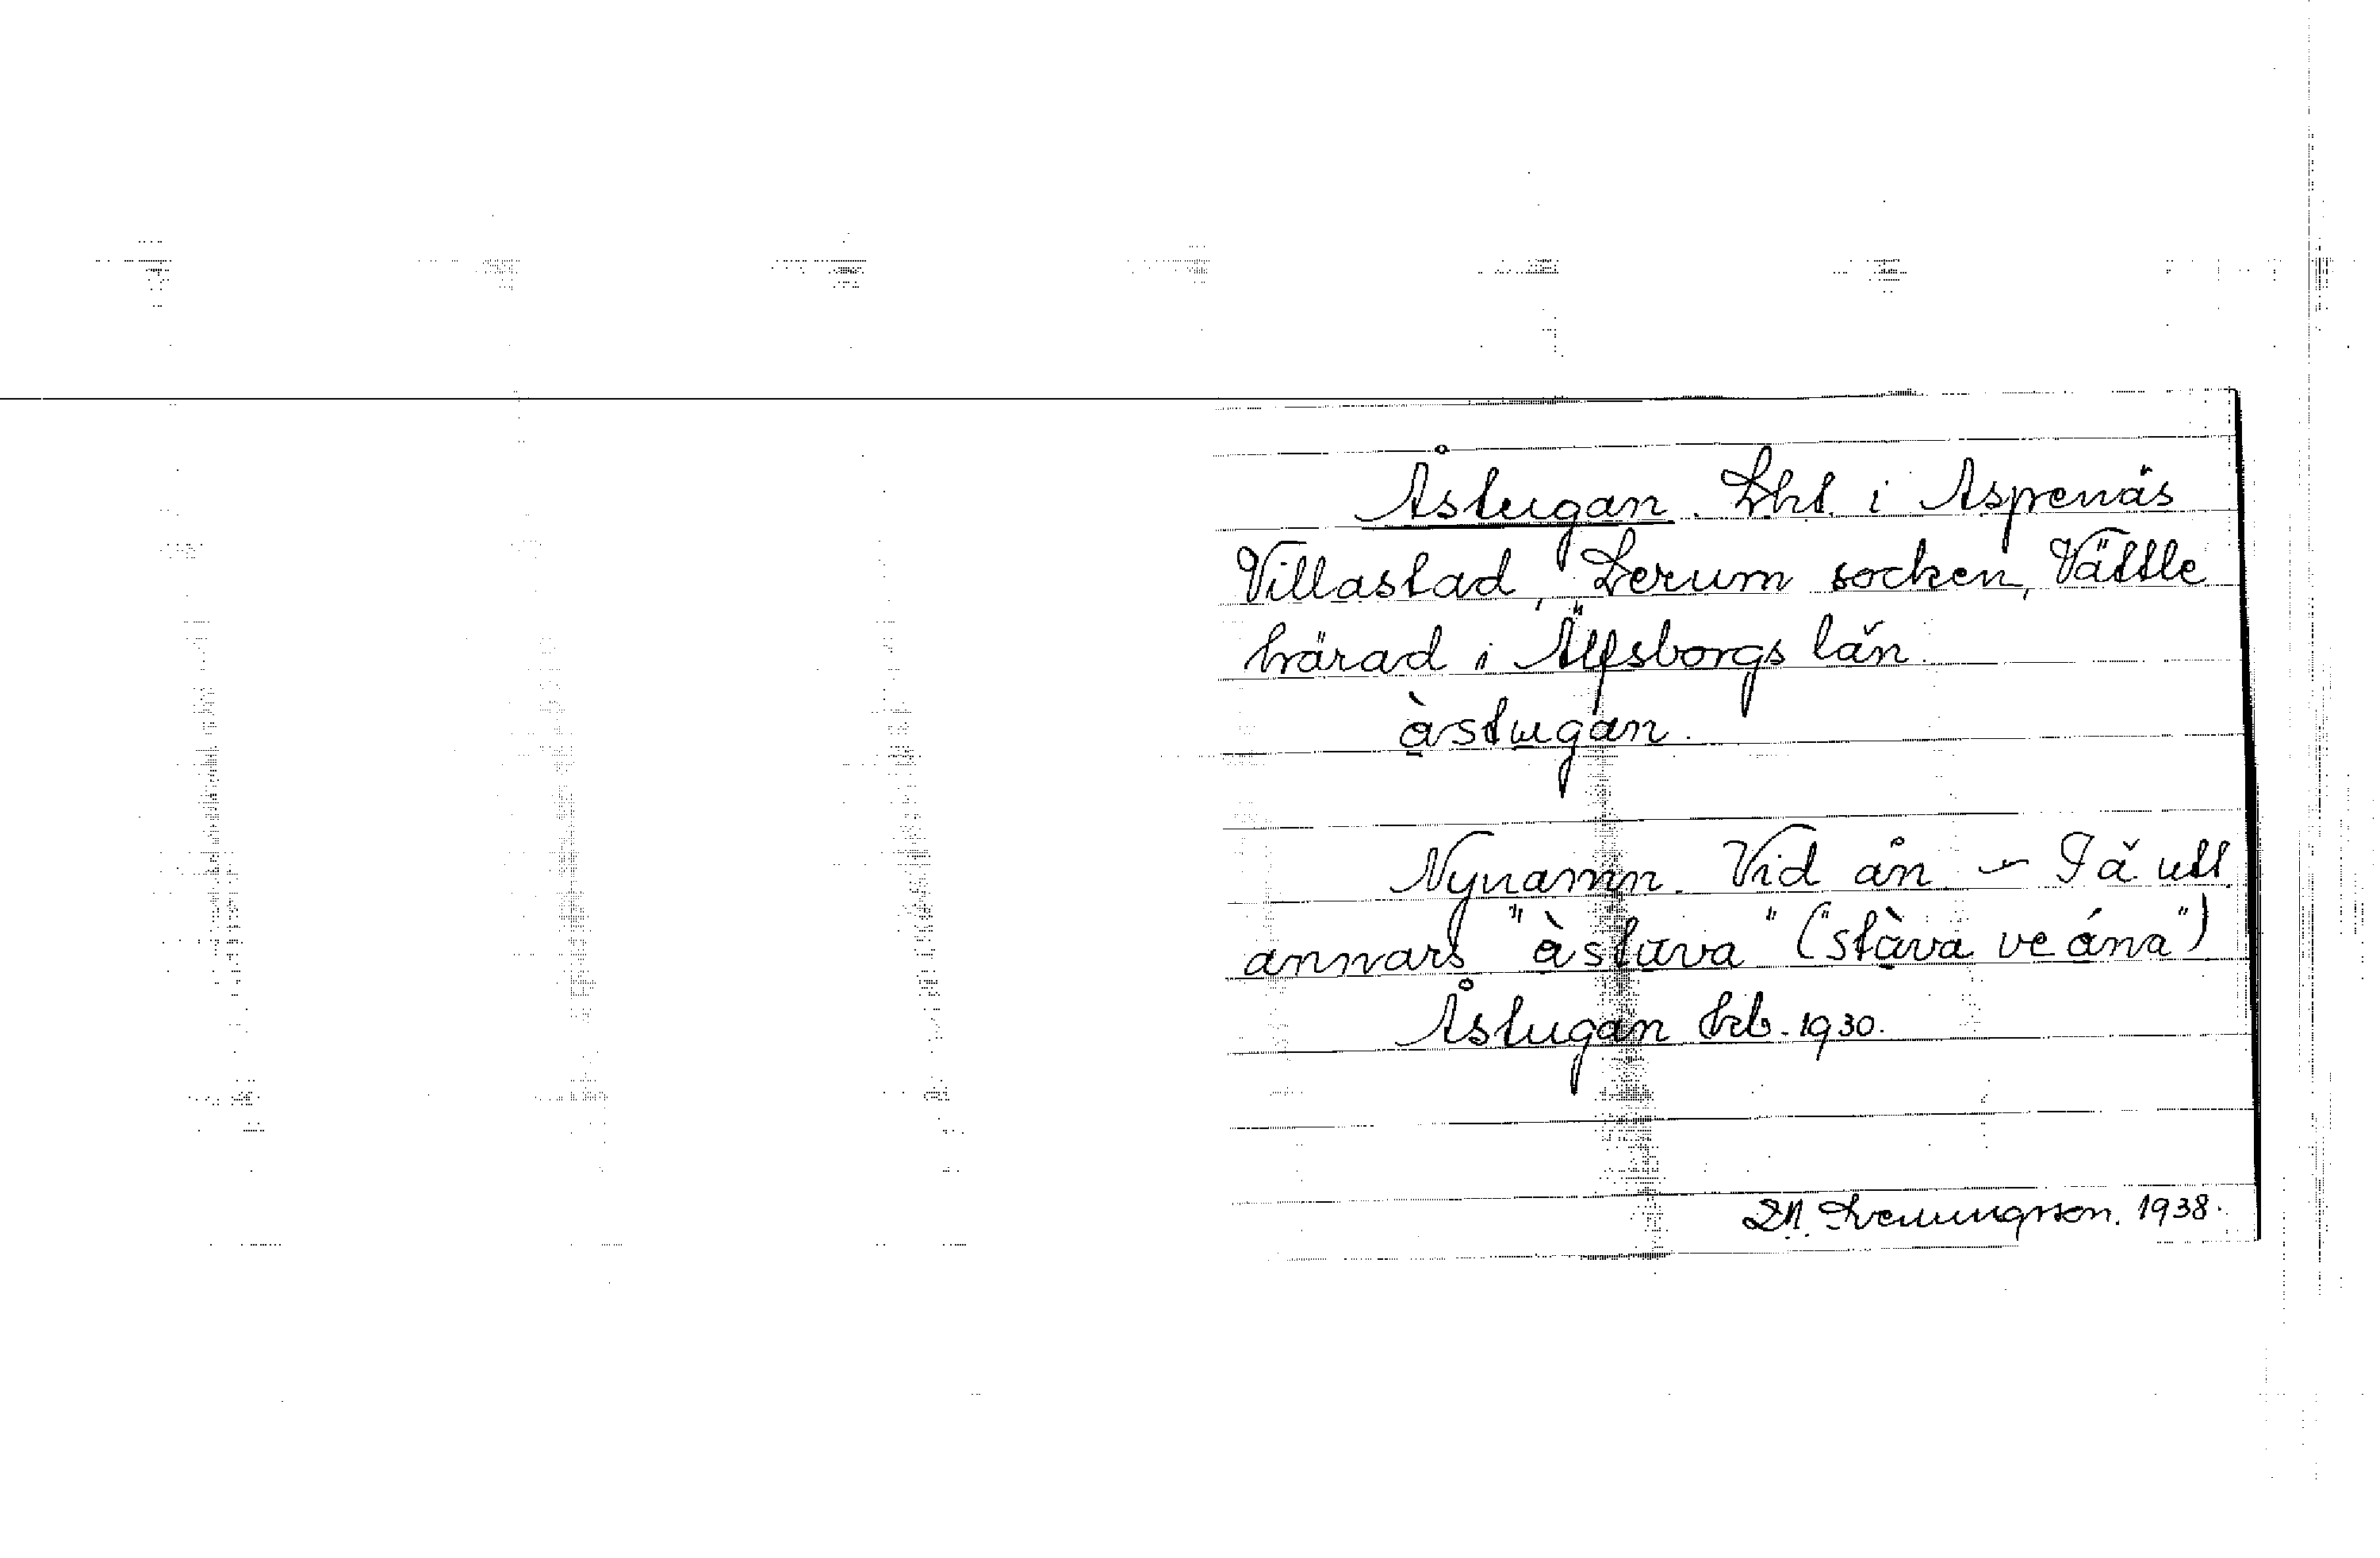 Åstugan. Lht. i Aspenäs
Villastad, Lerum socken, Vättle
härad i Älfsborgs län.
àstugan.
Nynamn. Vid ån – På utt.
annars "àstuva" ("stùva ve ána")
Åstugan krb. 1930.
1938.